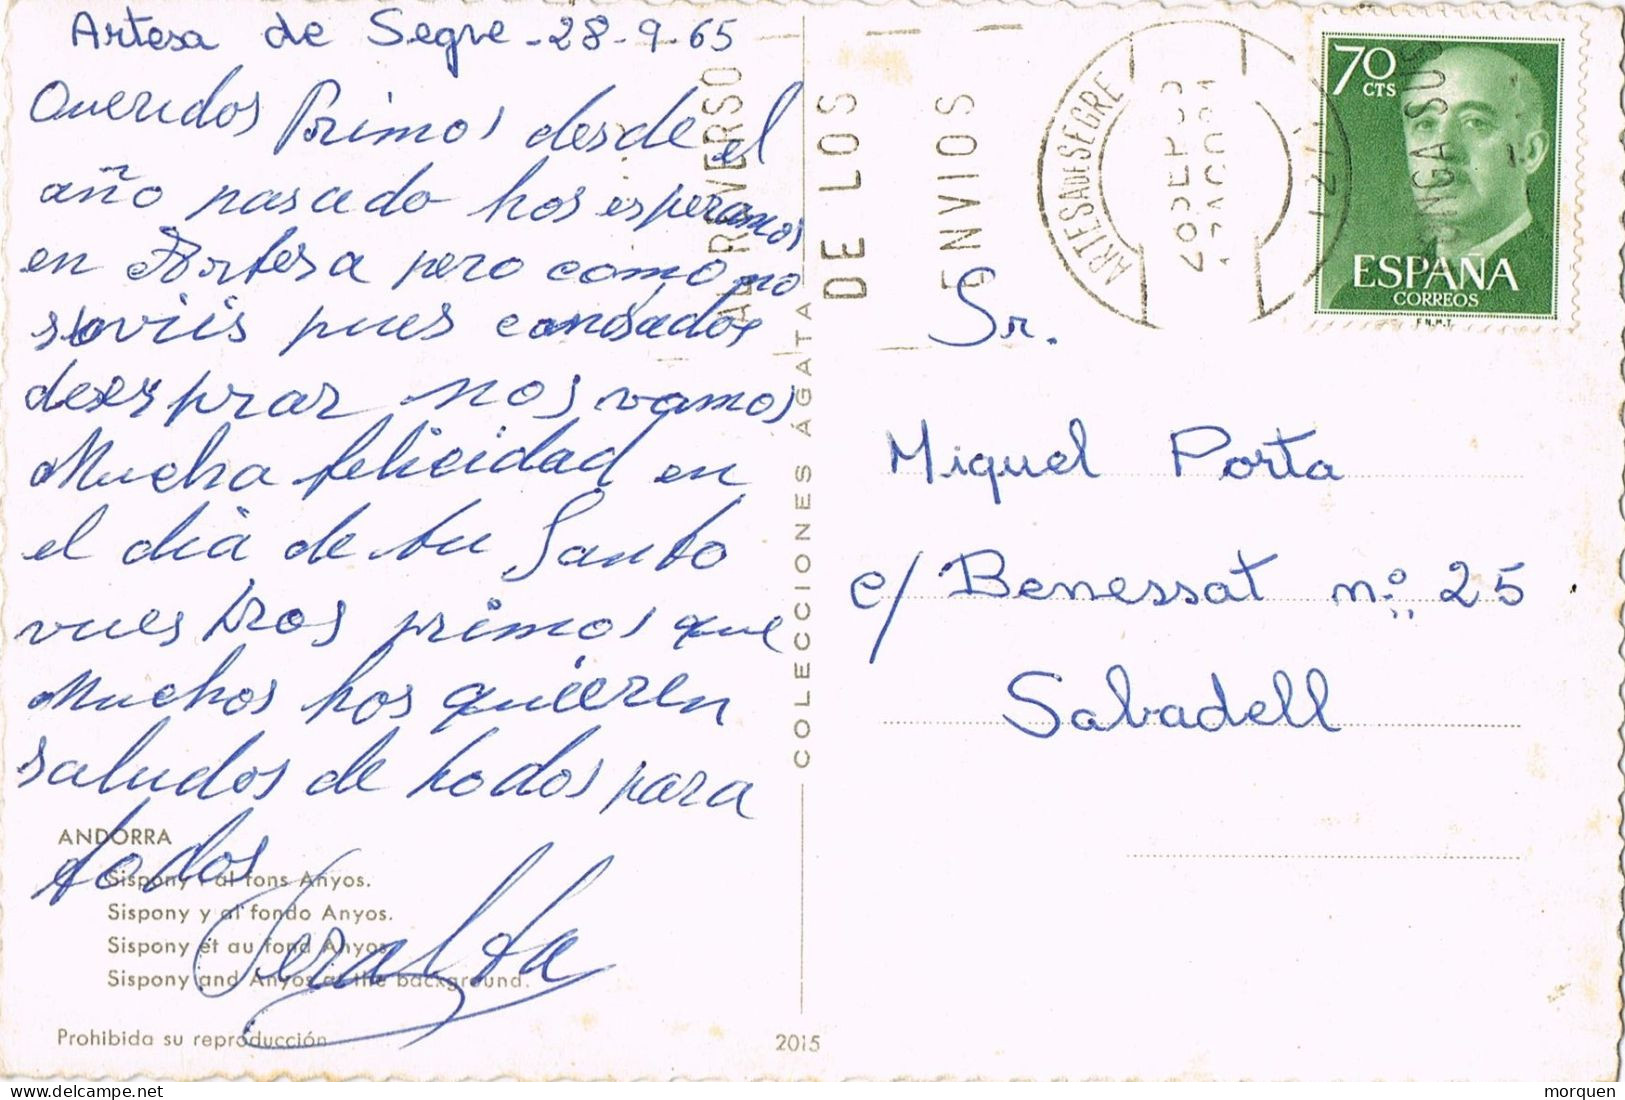 Artesa de Segre - 28-9-65
Queridos Primos desde el
año pasado hos esperamos
en Artesa pero como no
pues cansados
nos vamos
Mucha felicidad en
el dia de tu Santo
vuestros primos que
Muchos hos quieren
saludos de todos para
todos
Peralta
ANDORRA
Sispony i al fons Anyos.
Sispony y al fondo Anyos.
Sispony et au fond Anyos.
Sispony and Anyos at the background.
Prohibida su reproducción
2015
COLECCIONES ÁGATA
AL REVERSO
DE LOS
ENVIOS
PONGA SUS
ARTESA DE SEGRE
70
CTS
ESPAÑA
CORREOS
F.N.M.T.
Sr.
Miquel Porta
c/ Benessat nº 25
Sabadell
morquen